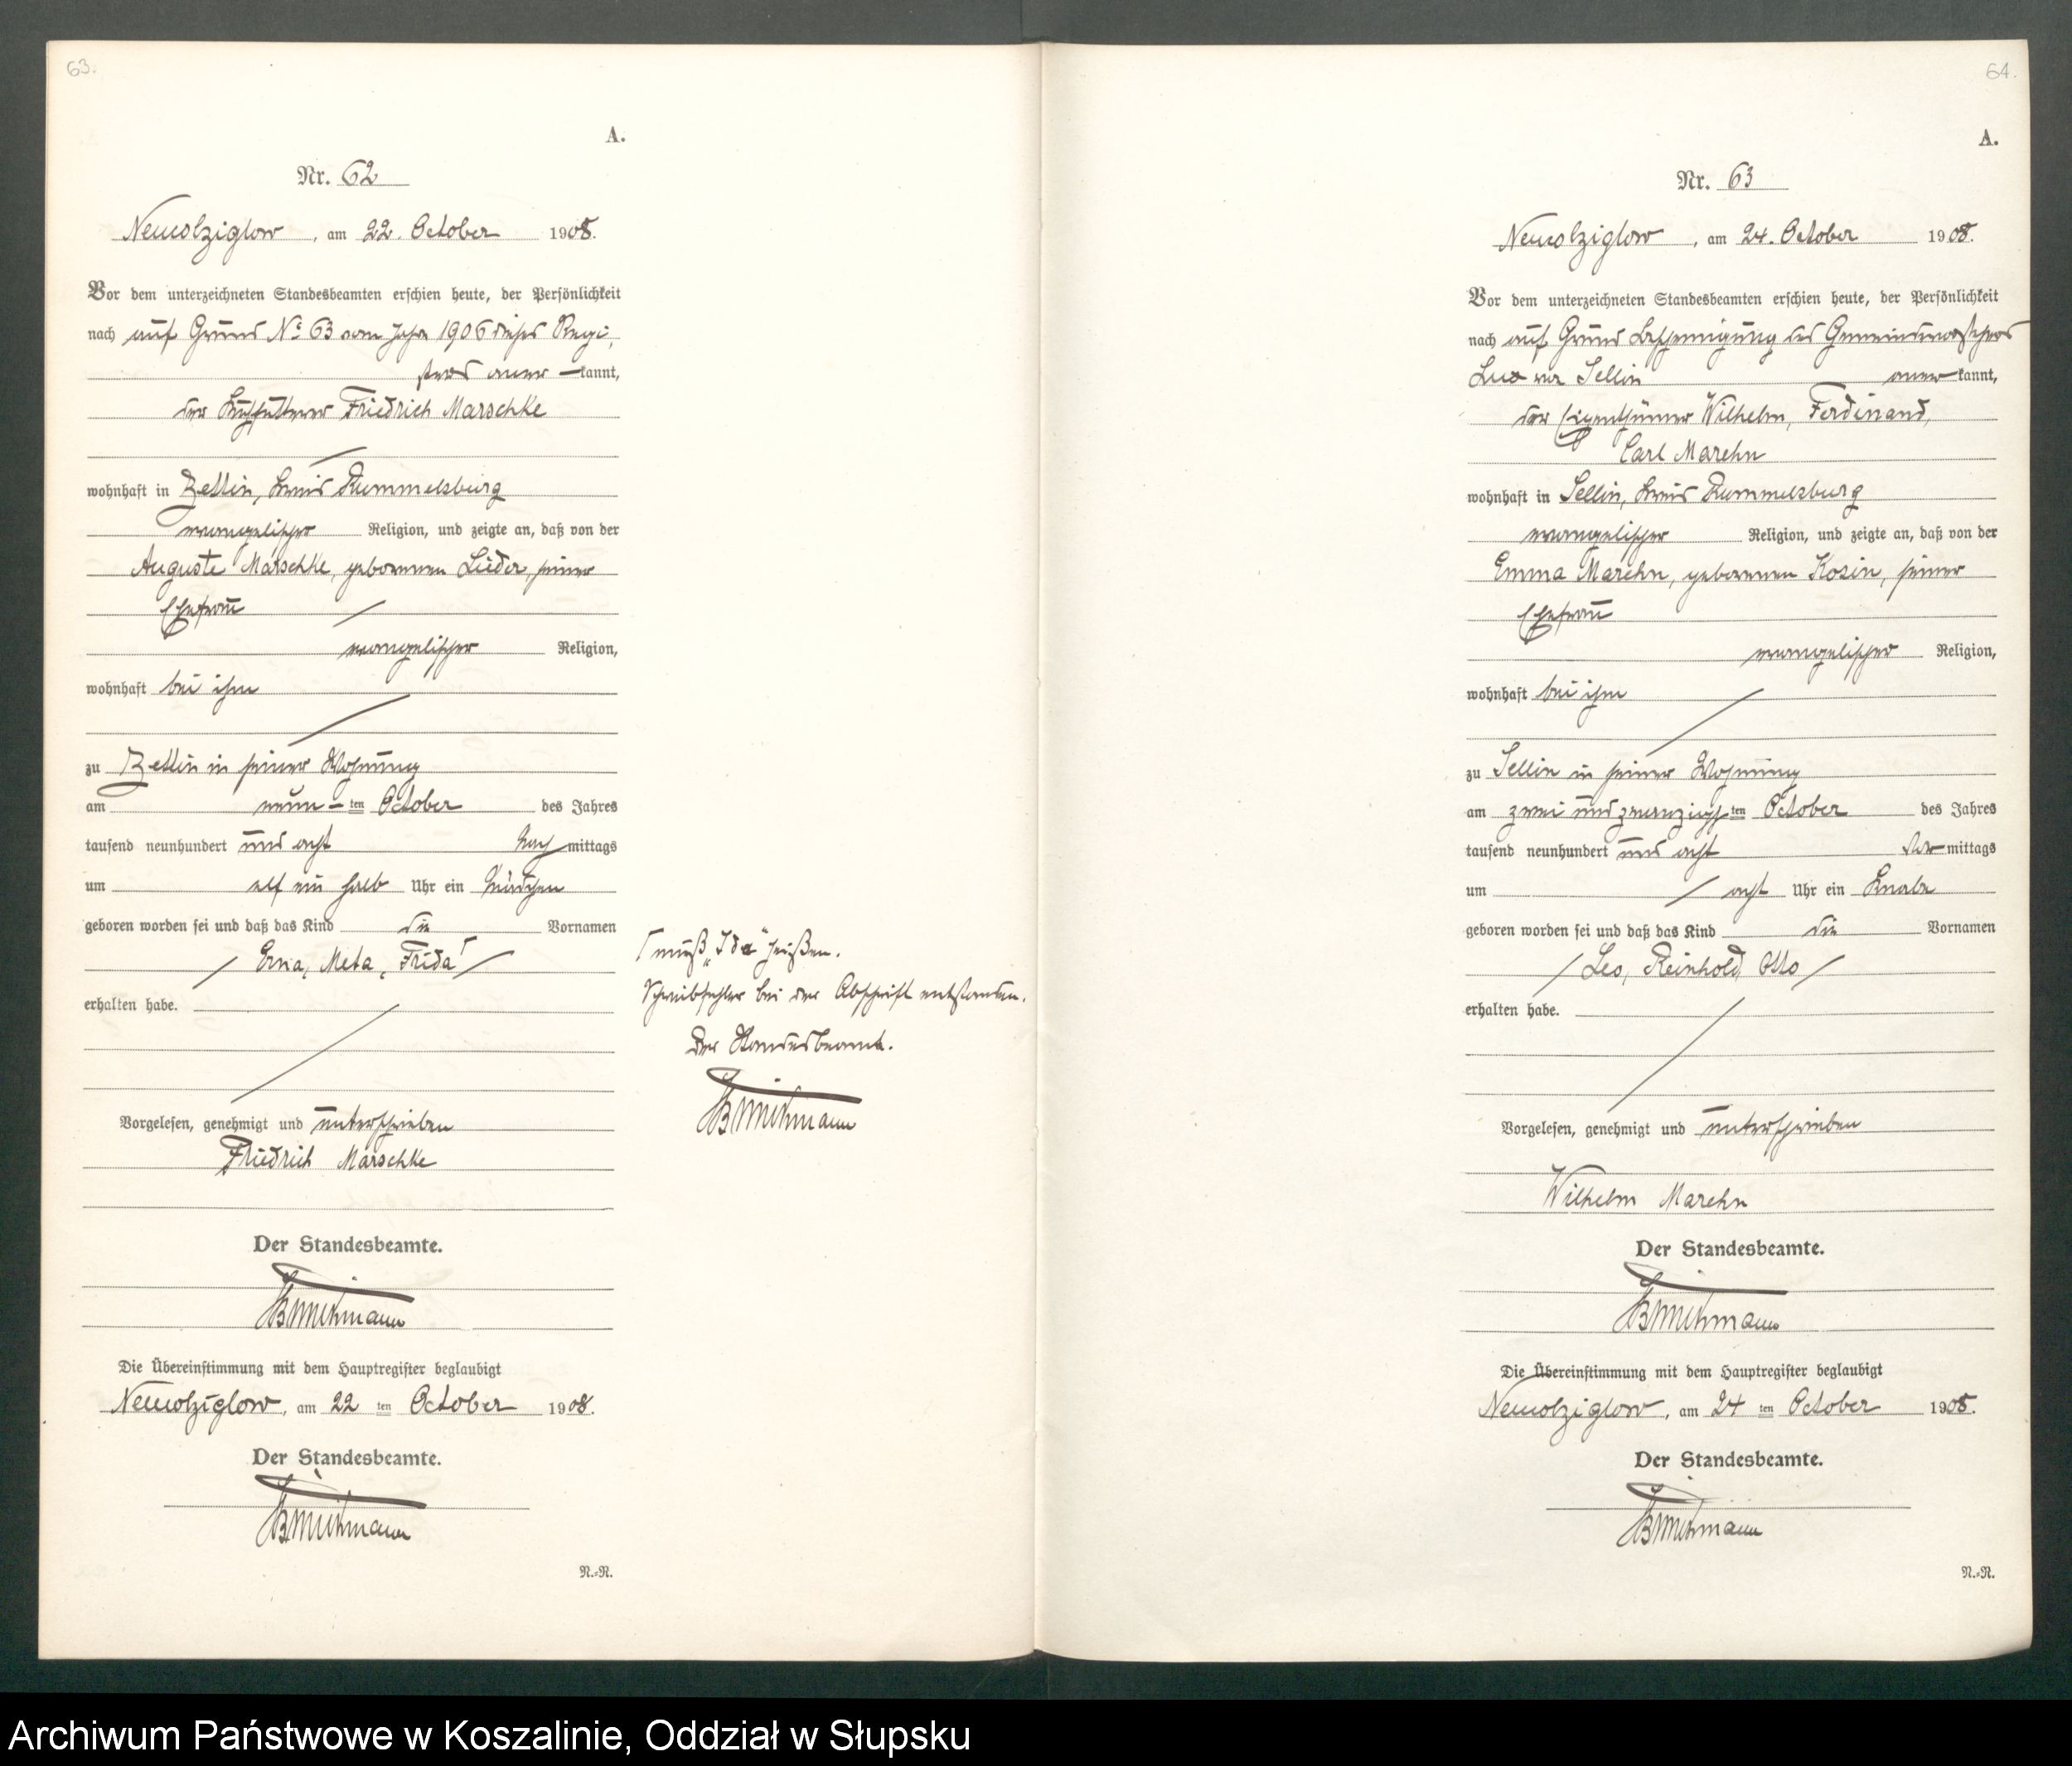 63.
A.
Nr. 62
Neuwolziglow, am 22. October 1908.
Vor dem unterzeichneten Standesbeamten erschien heute, der Persönlichkeit
nach auf Grund No 63 vom Jahre 1906 dieses Regi-
sters aner — kannt,
der Kuhfütterer Friedrich Marschke
wohnhaft in Zettin, Kreis Rummelsburg
evangelischer Religion, und zeigte an, daß von der
Auguste Marschke, geborenen Lieder, seiner
Ehefrau
evangelischer Religion,
wohnhaft bei ihm
zu Zettin in seiner Wohnung
am neun - ten October des Jahres
tausend neunhundert und acht Nach mittags
um elf ein halb Uhr ein Mädchen
geboren worden sei und daß das Kind die Vornamen
Erna, Meta, Frida Γ
erhalten habe.
Γ muß „Ida“ heißen.
Schreibfehler bei der Abschrift entstanden.
Der Standesbeamte.
Vorgelesen, genehmigt und unterschrieben
Friedrich Marschke
Der Standesbeamte.
Die Übereinstimmung mit dem Hauptregister beglaubigt
Neuwolziglow, am 22 ten October 1908.
Der Standesbeamte.
N.=R.
64.
A.
Nr. 63
Neuwolziglow, am 24. October 1908.
Vor dem unterzeichneten Standesbeamten erschien heute, der Persönlichkeit
nach auf Grund Bescheinigung des Gemeindevorstehers
Lux von Sellin aner — kannt,
der Eigenthümer Wilhelm, Ferdinand,
Carl Marehn
wohnhaft in Sellin, Kreis Rummelsburg
evangelischer Religion, und zeigte an, daß von der
Emma Marehn, geborenen Kosin, seiner
Ehefrau
evangelischer Religion,
wohnhaft bei ihm
zu Sellin in seiner Wohnung
am zwei und zwanzigsten October des Jahres
tausend neunhundert und acht Vor mittags
um acht Uhr ein Knabe
geboren worden sei und daß das Kind die Vornamen
Leo, Reinhold, Otto
erhalten habe.
Vorgelesen, genehmigt und unterschrieben
Wilhelm Marehn
Der Standesbeamte.
Die Übereinstimmung mit dem Hauptregister beglaubigt
Neuwolziglow, am 24 ten October 1908.
Der Standesbeamte.
N.=R.
Archiwum Państwowe w Koszalinie, Oddział w Słupsku